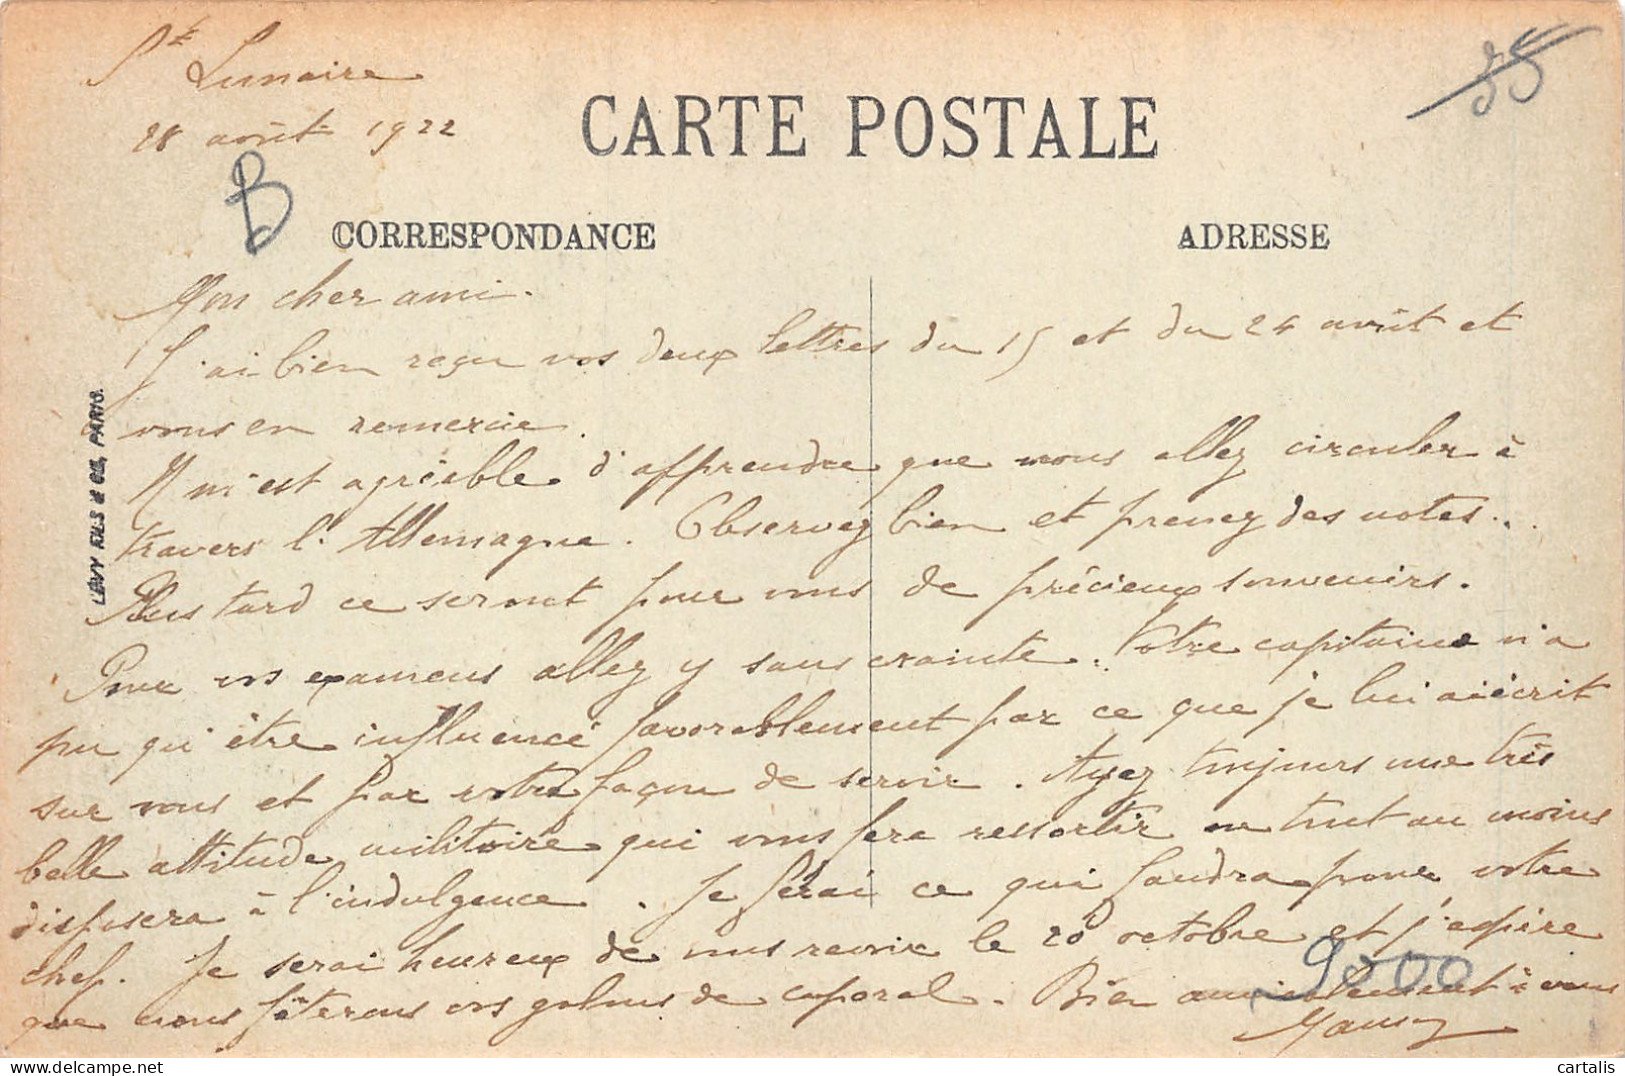 St Lunaire
28 août 1922
B
35
CARTE POSTALE
CORRESPONDANCE
ADRESSE
LÉVY FILS & Cie, PARIS.
Mon cher ami.
J'ai bien reçu vos deux lettres du 15 et du 24 août et
vous en remercie.
Il m'est agréable d'apprendre que vous allez circuler à
travers l'Allemagne. Observez bien et prenez des notes...
Plus tard ce seront pour vous de précieux souvenirs.
Pour vos examens allez y sans crainte. Votre capitaine n'a
pu qu'être influencé favorablement par ce que je lui ai écrit
sur vous et par votre façon de servir. Ayez toujours une très
belle attitude militaire qui vous fera ressortir et tout au moins
disposera à l'indulgence. Je ferai ce qui faudra pour votre
chef. Je serai heureux de vous revoir le 20 octobre et j'espère
que nous fêterons vos galons de caporal. Bien amicalement à vous
9000
cartalis